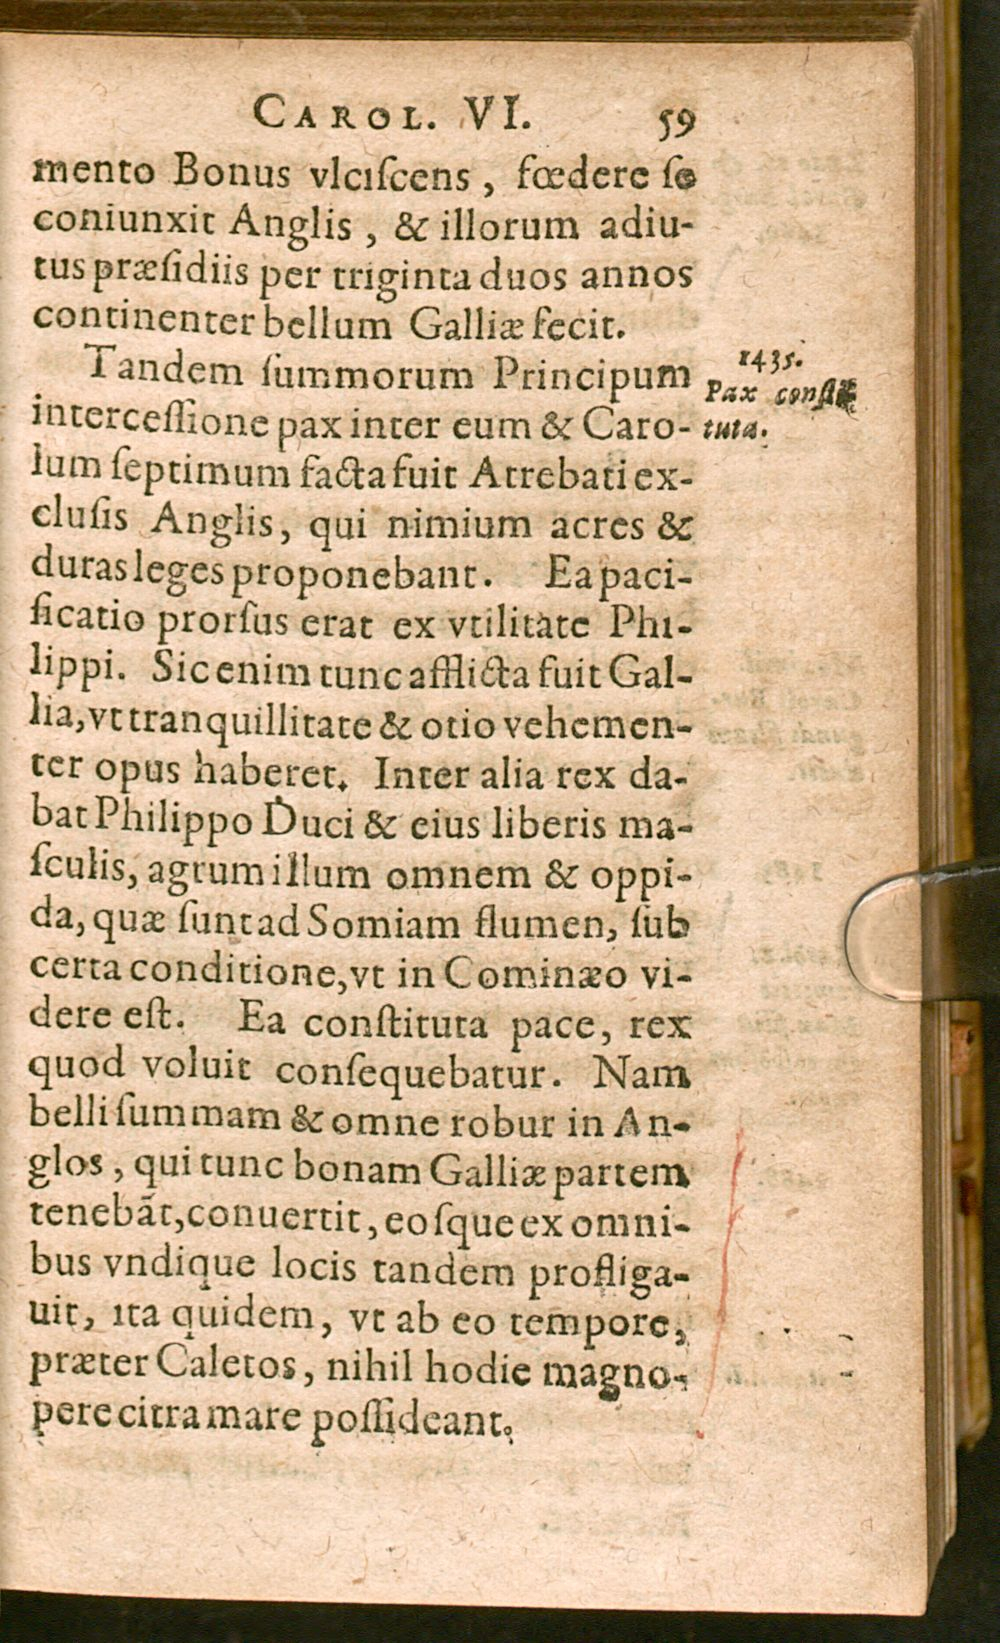 CAROL. VI. 59
mento Bonus vlciſcens, fœdere ſe
coniunxit Anglis, & illorum adiu-
tus præſidiis per triginta duos annos
continenter bellum Galliæ fecit.
Tandem ſummorum Principum
interceſſione pax inter eum & Caro-
lum ſeptimum facta fuit Atrebati ex-
cluſis Anglis, qui nimium acres &
duras leges proponebant. Ea paci-
ficatio prorſus erat ex vtilitate Phi-
lippi. Sic enim tunc afflicta fuit Gal-
lia, vt tranquillitate & otio vehemen-
ter opus haberet. Inter alia rex da-
bat Philippo Duci & eius liberis ma-
ſculis, agrum illum omnem & oppi-
da, quæ ſunt ad Somiam flumen, ſub
certa conditione, vt in Cominæo vi-
dere eſt. Ea conſtituta pace, rex
quod voluit conſequebatur. Nam
belli ſummam & omne robur in An-
glos, qui tunc bonam Galliæ partem
tenebãt, conuertit, eoſque ex omni-
bus vndique locis tandem profliga-
uit, ita quidem, vt ab eo tempore,
præter Caletos, nihil hodie magno-
pere citra mare poſſideant.
1435.
Pax conſti-
tuta.